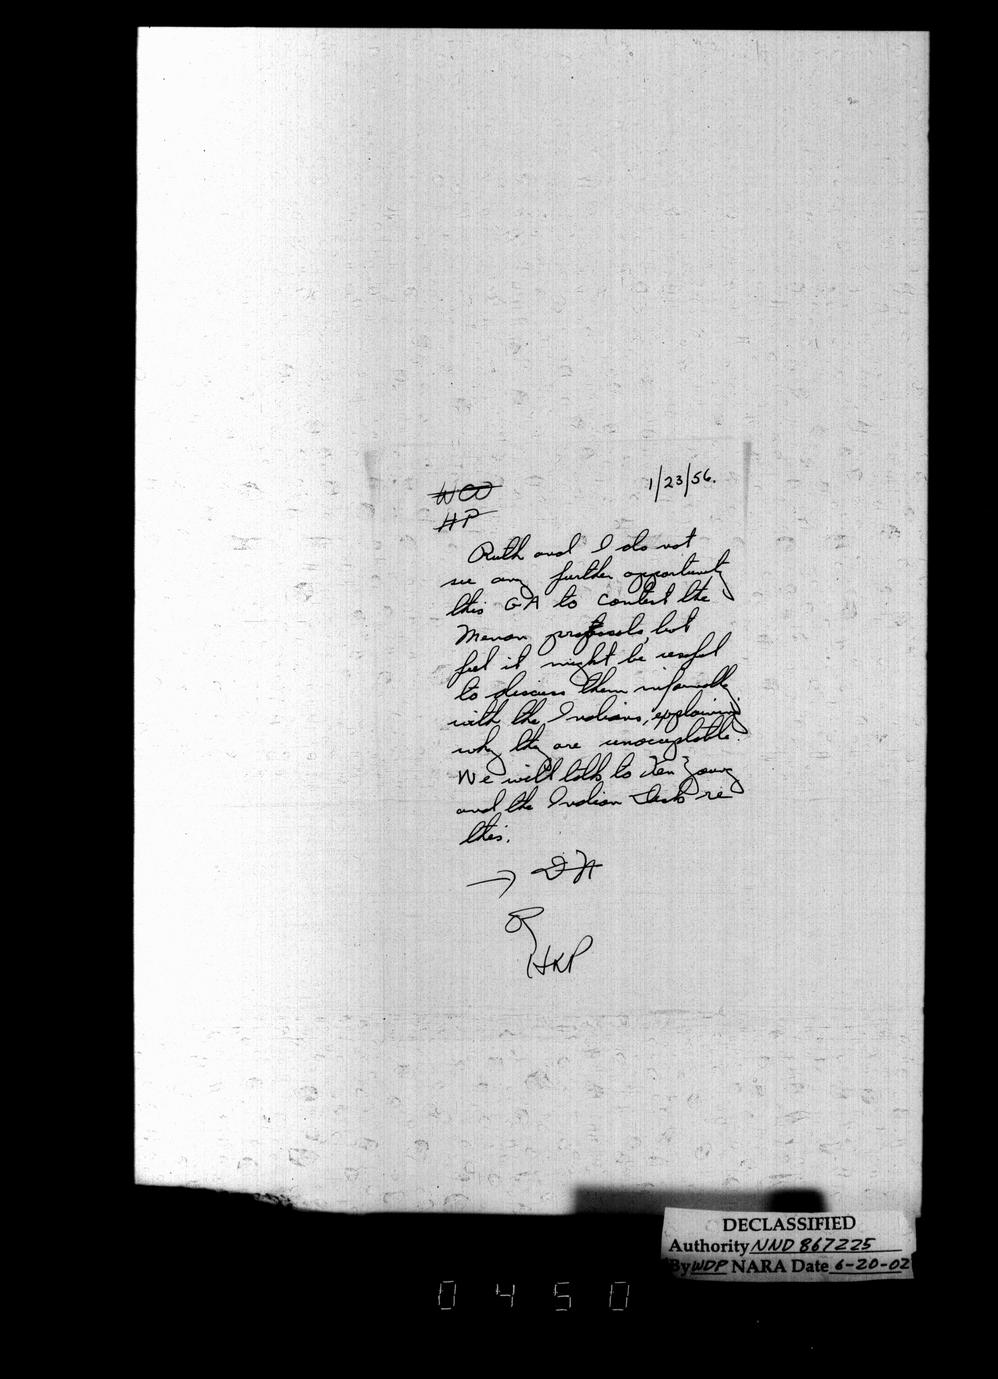 1/23/56.
WOO
HP
Ruth and I do not
see any further opportunity
this GA to contest the
Menon proposals, but
feel it might be useful
to discuss them informally
with the Indians, explaining
why they are unacceptable.
We will talk to Ken Young
and the Indian Desk re
this.
→ DN
HKP
DECLASSIFIED
Authority NND 867225
By WDP NARA Date 6-20-02
0450